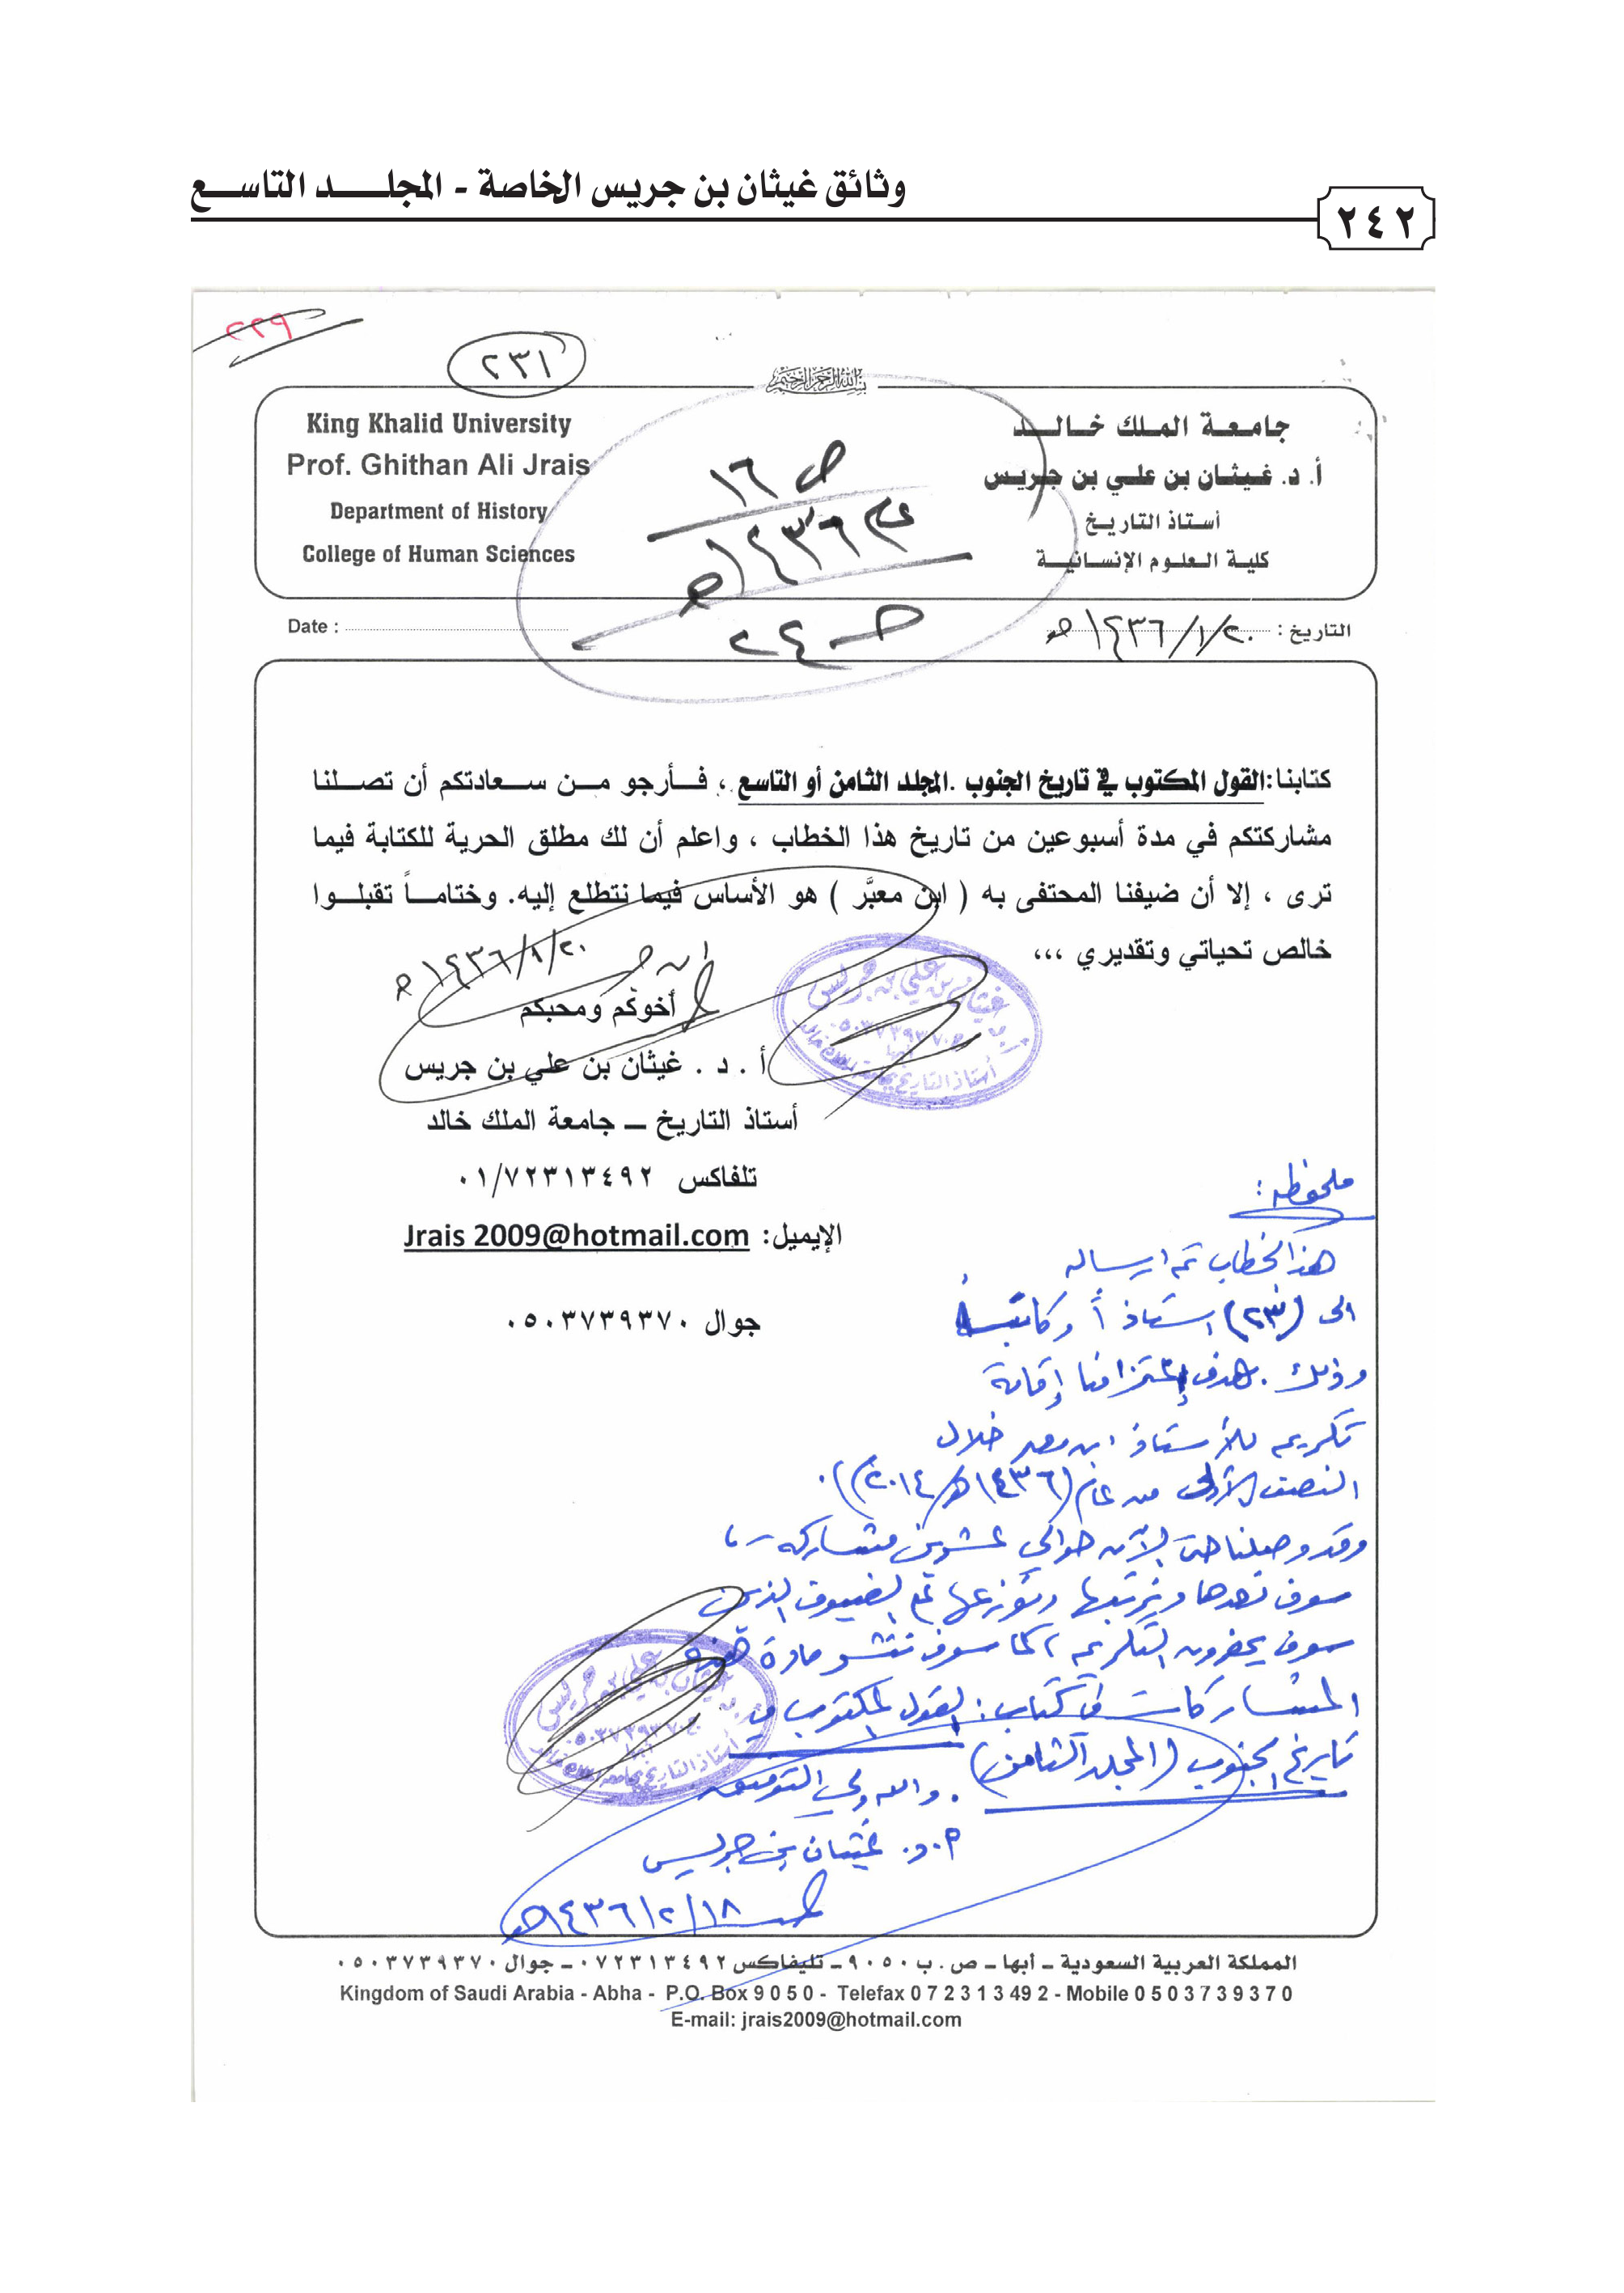 وثائق غيثان بن جريس الخاصة - المجلـــــد التاســـع
٢٤٢
٢٢٩
٢٣١
بسم الله الرحمن الرحيم
جامعـة الملك خـالـــد
أ. د. غيثان بن علي بن جريس
أستاذ التاريـخ
كلية العلوم الإنسانيـة
King Khalid University
Prof. Ghithan Ali Jrais
Department of History
College of Human Sciences
ص ١٦
١٤٣٦هـ
٢٤
التاريخ : ٢٠/١/١٤٣٦هـ
Date :
كتابنا: القول المكتوب في تاريخ الجنوب .المجلد الثامن أو التاسع ، فــأرجو مــن ســعادتكم أن تصــلنا
مشاركتكم في مدة أسبوعين من تاريخ هذا الخطاب ، واعلم أن لك مطلق الحرية للكتابة فيما
ترى ، إلا أن ضيفنا المحتفى به ( ابن معبَّر ) هو الأساس فيما نتطلع إليه. وختامــاً تقبلــوا
خالص تحياتي وتقديري ،،،
٢٠/١/١٤٣٦هـ
أخوكم ومحبكم
أ . د . غيثان بن علي بن جريس
أستاذ التاريخ ــ جامعة الملك خالد
تلفاكس ٠١/٧٢٣١٣٤٩٢
الإيميل: Jrais 2009@hotmail.com
جوال ٠٥٠٣٧٣٩٣٧٠
غيثان بن علي بن جريس
٠٥٠٣٧٣٩٣٧٠
أستاذ التاريخ بجامعة الملك خالد
ملحوظة :
هذا الخطاب تم ارساله
الى (٢٣) استاذ أ وكاتباً
وذلك بهدف إعتزامنا إقامة
تكريم للأستاذ ابن معبر خلال
النصف الأول من عام (١٤٣٦هـ/٢٠١٤م).
وقد وصلنا حتى الآن حوالي عشرين مشاركة ،
سوف نعدها ونرتبها ونوزعها على الضيوف الذين
سوف يحضرون التكريم ، كما سوف ننشر مادة هذه
المشاركات في كتاب : القول المكتوب في
تاريخ الجنوب (المجلد الثامن) . والله ولي التوفيق
أ.د. غيثان بن جريس
١٨/٢/١٤٣٦هـ
غيثان بن علي بن جريس
٠٥٠٣٧٣٩٣٧٠
أستاذ التاريخ بجامعة الملك خالد
المملكة العربية السعودية ــ أبها ــ ص . ب ٩٠٥٠ ــ تليفاكس ٠٧٢٣١٣٤٩٢ ــ جوال ٠٥٠٣٧٣٩٣٧٠
Kingdom of Saudi Arabia - Abha - P.O. Box 9 0 5 0 - Telefax 0 7 2 3 1 3 49 2 - Mobile 0 5 0 3 7 3 9 3 7 0
E-mail: jrais2009@hotmail.com